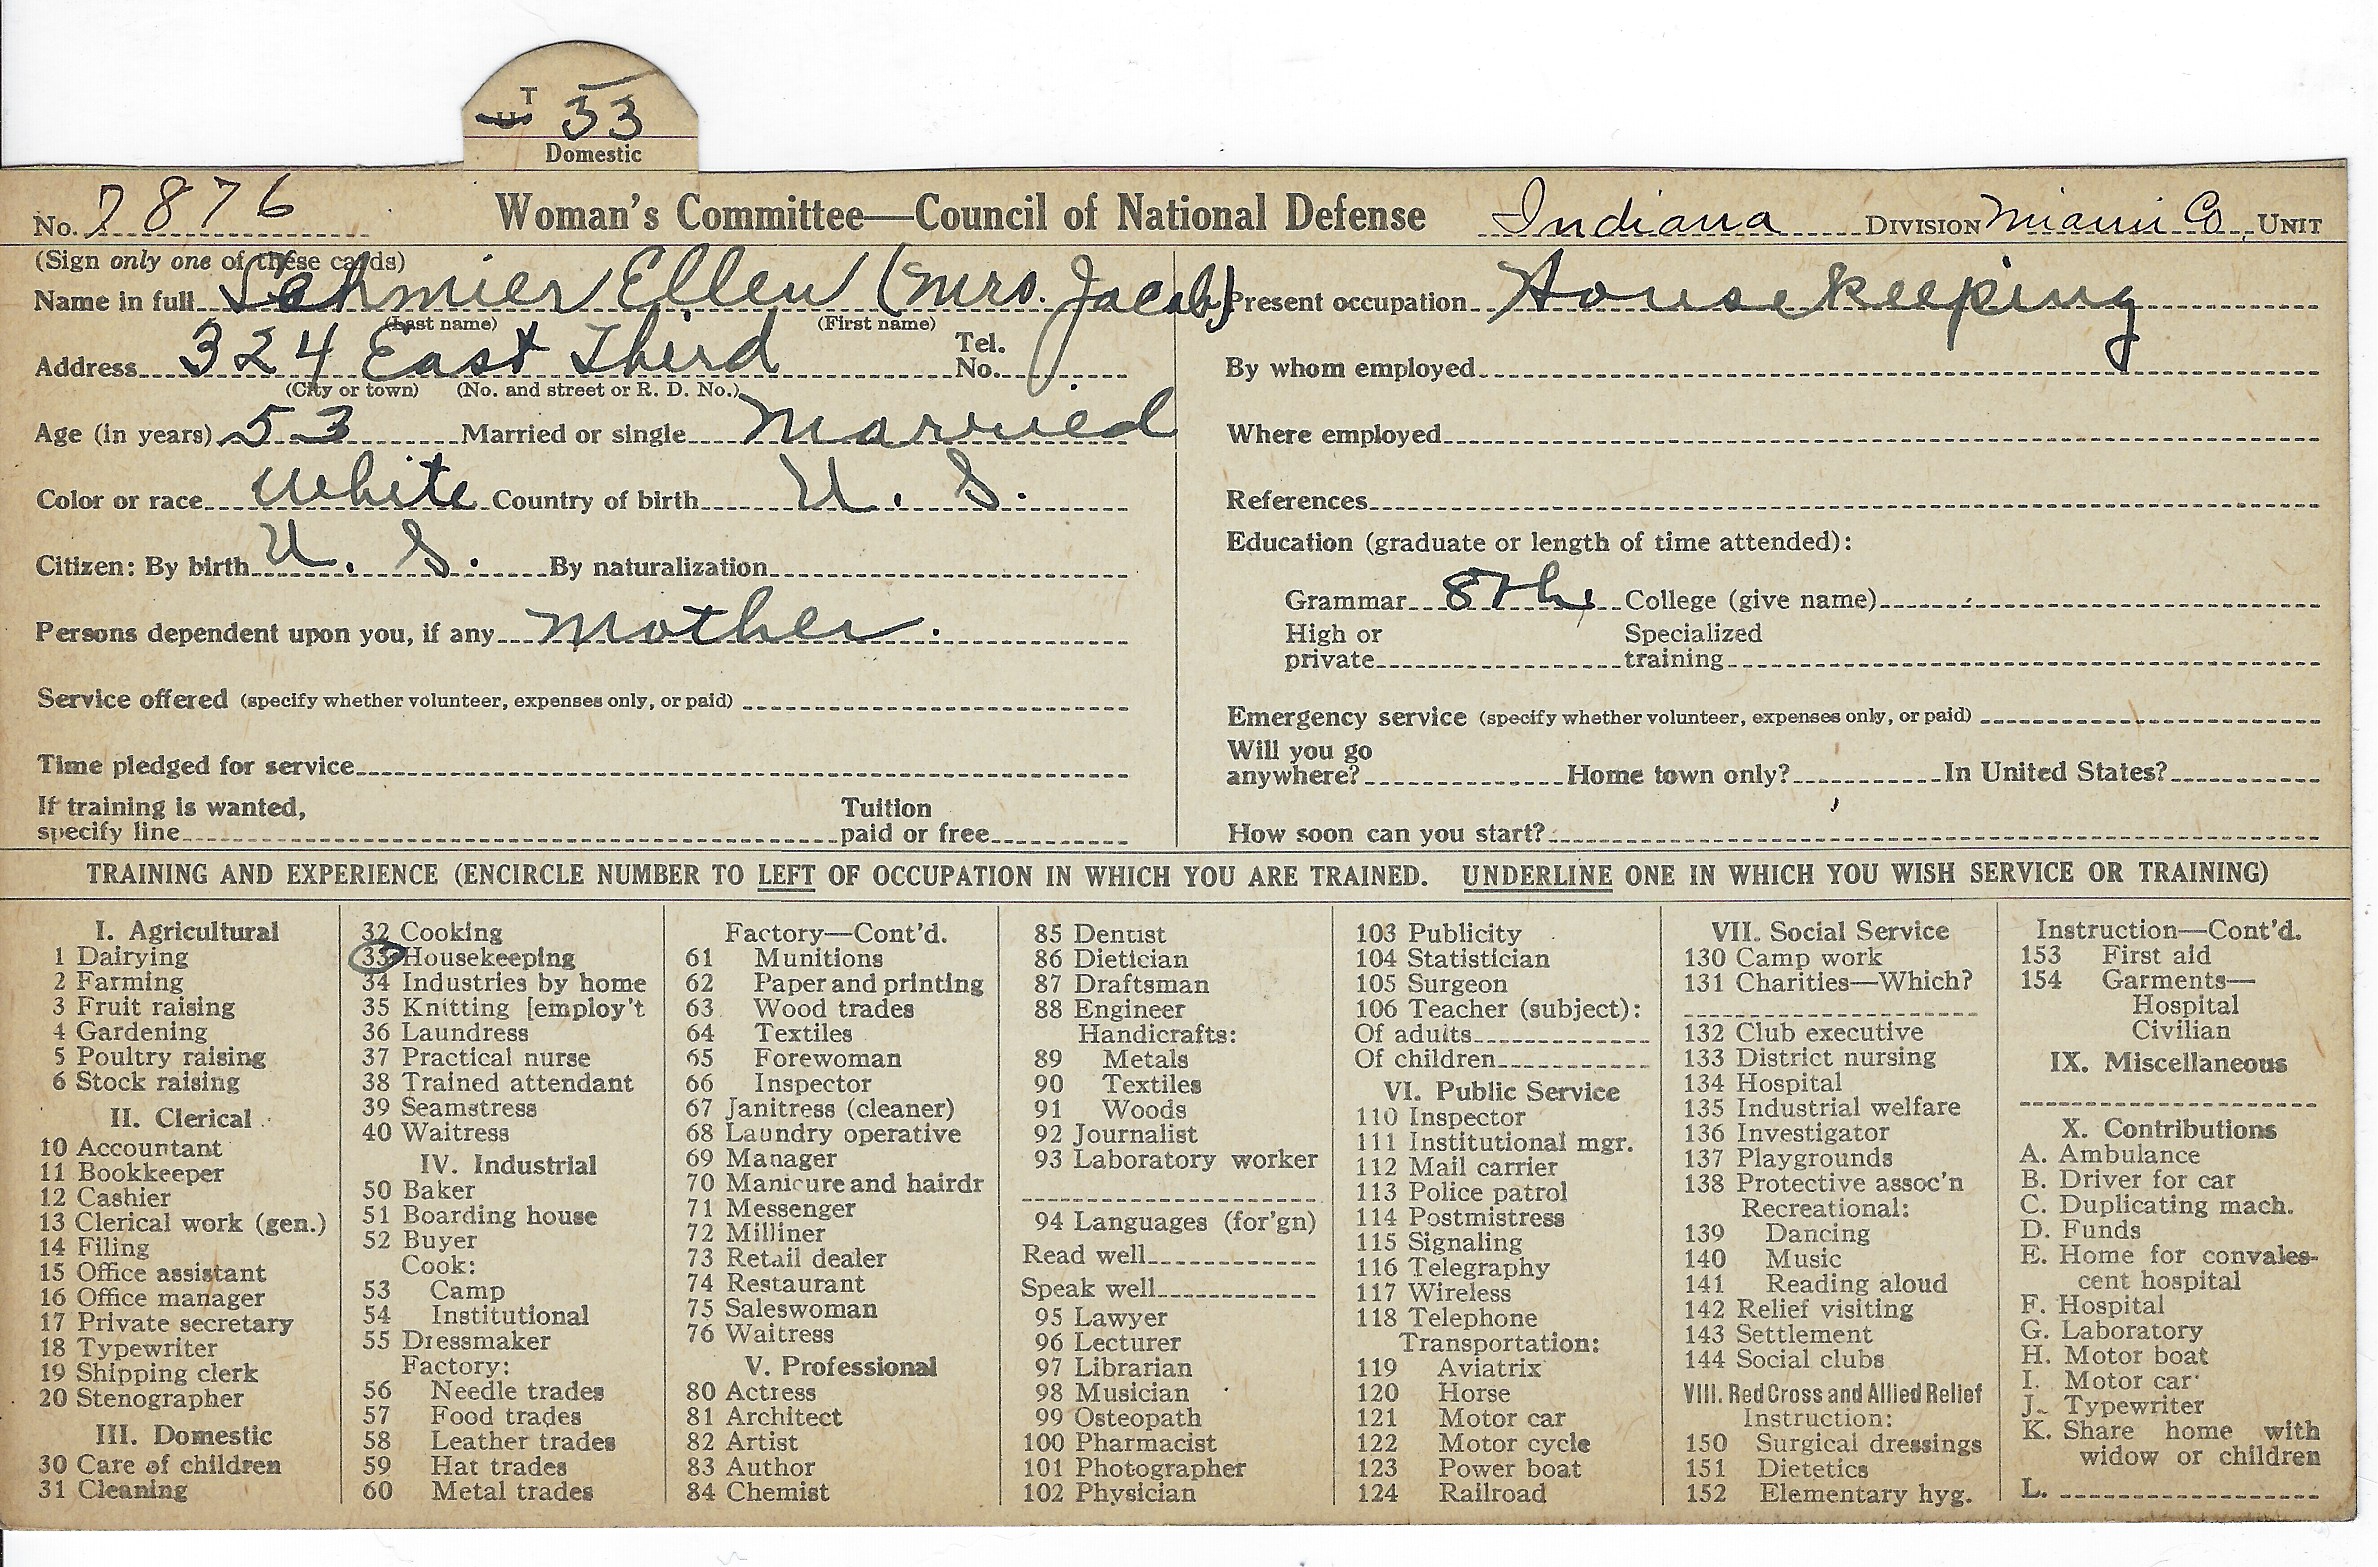 T
U 53
Domestic
No. 7876 Woman's Committee—Council of National Defense Indiana DIVISION Miami Co. UNIT
(Sign only one of these cards)
Name in full Schmier Ellen (Mrs. Jacob)
(Last name) (First name)
Address 324 East Third Tel. No.
(City or town) (No. and street or R. D. No.)
Age (in years) 53 Married or single Married
Color or race White Country of birth U. S.
Citizen: By birth U. S. By naturalization
Persons dependent upon you, if any Mother.
Service offered (specify whether volunteer, expenses only, or paid)
Time pledged for service
If training is wanted, Tuition
specify line paid or free
Present occupation Housekeeping
By whom employed
Where employed
References
Education (graduate or length of time attended):
Grammar 8th College (give name)
High or Specialized
private training
Emergency service (specify whether volunteer, expenses only, or paid)
Will you go
anywhere? Home town only? In United States?
How soon can you start?
TRAINING AND EXPERIENCE (ENCIRCLE NUMBER TO LEFT OF OCCUPATION IN WHICH YOU ARE TRAINED. UNDERLINE ONE IN WHICH YOU WISH SERVICE OR TRAINING)
I. Agricultural
1 Dairying
2 Farming
3 Fruit raising
4 Gardening
5 Poultry raising
6 Stock raising
II. Clerical
10 Accountant
11 Bookkeeper
12 Cashier
13 Clerical work (gen.)
14 Filing
15 Office assistant
16 Office manager
17 Private secretary
18 Typewriter
19 Shipping clerk
20 Stenographer
III. Domestic
30 Care of children
31 Cleaning
32 Cooking
33 Housekeeping
34 Industries by home
35 Knitting [employ't
36 Laundress
37 Practical nurse
38 Trained attendant
39 Seamstress
40 Waitress
IV. Industrial
50 Baker
51 Boarding house
52 Buyer
Cook:
53 Camp
54 Institutional
55 Dressmaker
Factory:
56 Needle trades
57 Food trades
58 Leather trades
59 Hat trades
60 Metal trades
Factory—Cont'd.
61 Munitions
62 Paper and printing
63 Wood trades
64 Textiles
65 Forewoman
66 Inspector
67 Janitress (cleaner)
68 Laundry operative
69 Manager
70 Manicure and hairdr
71 Messenger
72 Milliner
73 Retail dealer
74 Restaurant
75 Saleswoman
76 Waitress
V. Professional
80 Actress
81 Architect
82 Artist
83 Author
84 Chemist
85 Dentist
86 Dietician
87 Draftsman
88 Engineer
Handicrafts:
89 Metals
90 Textiles
91 Woods
92 Journalist
93 Laboratory worker
94 Languages (for'gn)
Read well
Speak well
95 Lawyer
96 Lecturer
97 Librarian
98 Musician
99 Osteopath
100 Pharmacist
101 Photographer
102 Physician
103 Publicity
104 Statistician
105 Surgeon
106 Teacher (subject):
Of adults
Of children
VI. Public Service
110 Inspector
111 Institutional mgr.
112 Mail carrier
113 Police patrol
114 Postmistress
115 Signaling
116 Telegraphy
117 Wireless
118 Telephone
Transportation:
119 Aviatrix
120 Horse
121 Motor car
122 Motor cycle
123 Power boat
124 Railroad
VII. Social Service
130 Camp work
131 Charities—Which?
132 Club executive
133 District nursing
134 Hospital
135 Industrial welfare
136 Investigator
137 Playgrounds
138 Protective assoc'n
Recreational:
139 Dancing
140 Music
141 Reading aloud
142 Relief visiting
143 Settlement
144 Social clubs
VIII. Red Cross and Allied Relief
Instruction:
150 Surgical dressings
151 Dietetics
152 Elementary hyg.
Instruction—Cont'd.
153 First aid
154 Garments—
Hospital
Civilian
IX. Miscellaneous
X. Contributions
A. Ambulance
B. Driver for car
C. Duplicating mach.
D. Funds
E. Home for convales-
cent hospital
F. Hospital
G. Laboratory
H. Motor boat
I. Motor car
J. Typewriter
K. Share home with
widow or children
L.